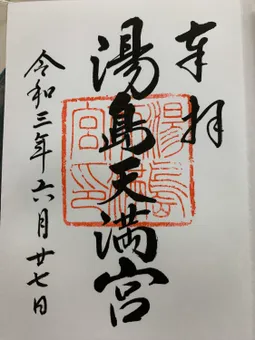 奉拝
湯島天満宮
令和三年六月廿七日
湯島天満宮印